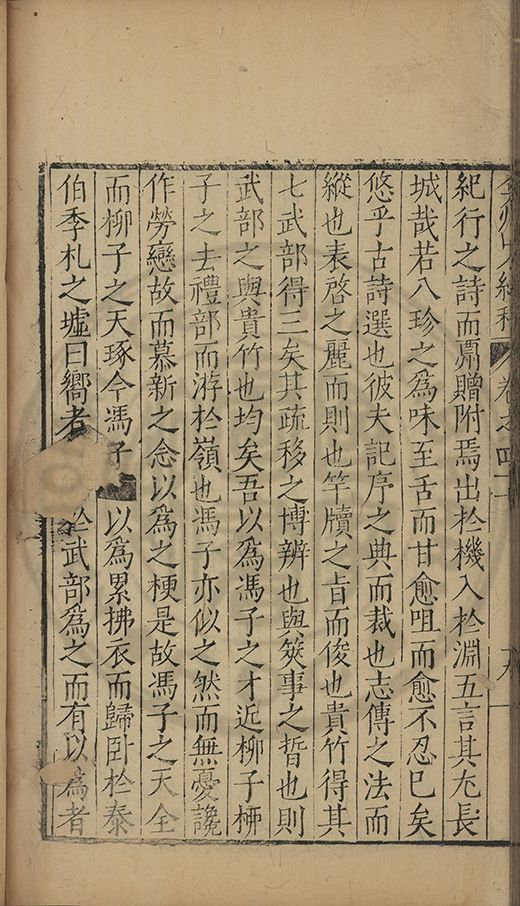 州 續稿 卷之四十
紀行之詩而肅贈附焉出扵機入扵淵五言其尤長
城哉若八珍之為味至舌而甘愈咀而愈不忍已矣
悠乎古詩選也彼夫記序之典而裁也志傳之法而
縱也表啓之麗而則也竿牘之旨而俊也貴竹得其
七武部得三矣其疏移之博辨也與筴事之晢也則
武部之與貴竹也均矣吾以為馮子之才近柳子柳
子之去禮部而游扵嶺也馮子亦似之然而無憂讒
作勞戀故而慕新之念以為之梗是故馮子之天全
而柳子之天琢今馮子以為累拂衣而歸臥扵泰
伯季札之墟曰嚮者扵武部為之而有以為者